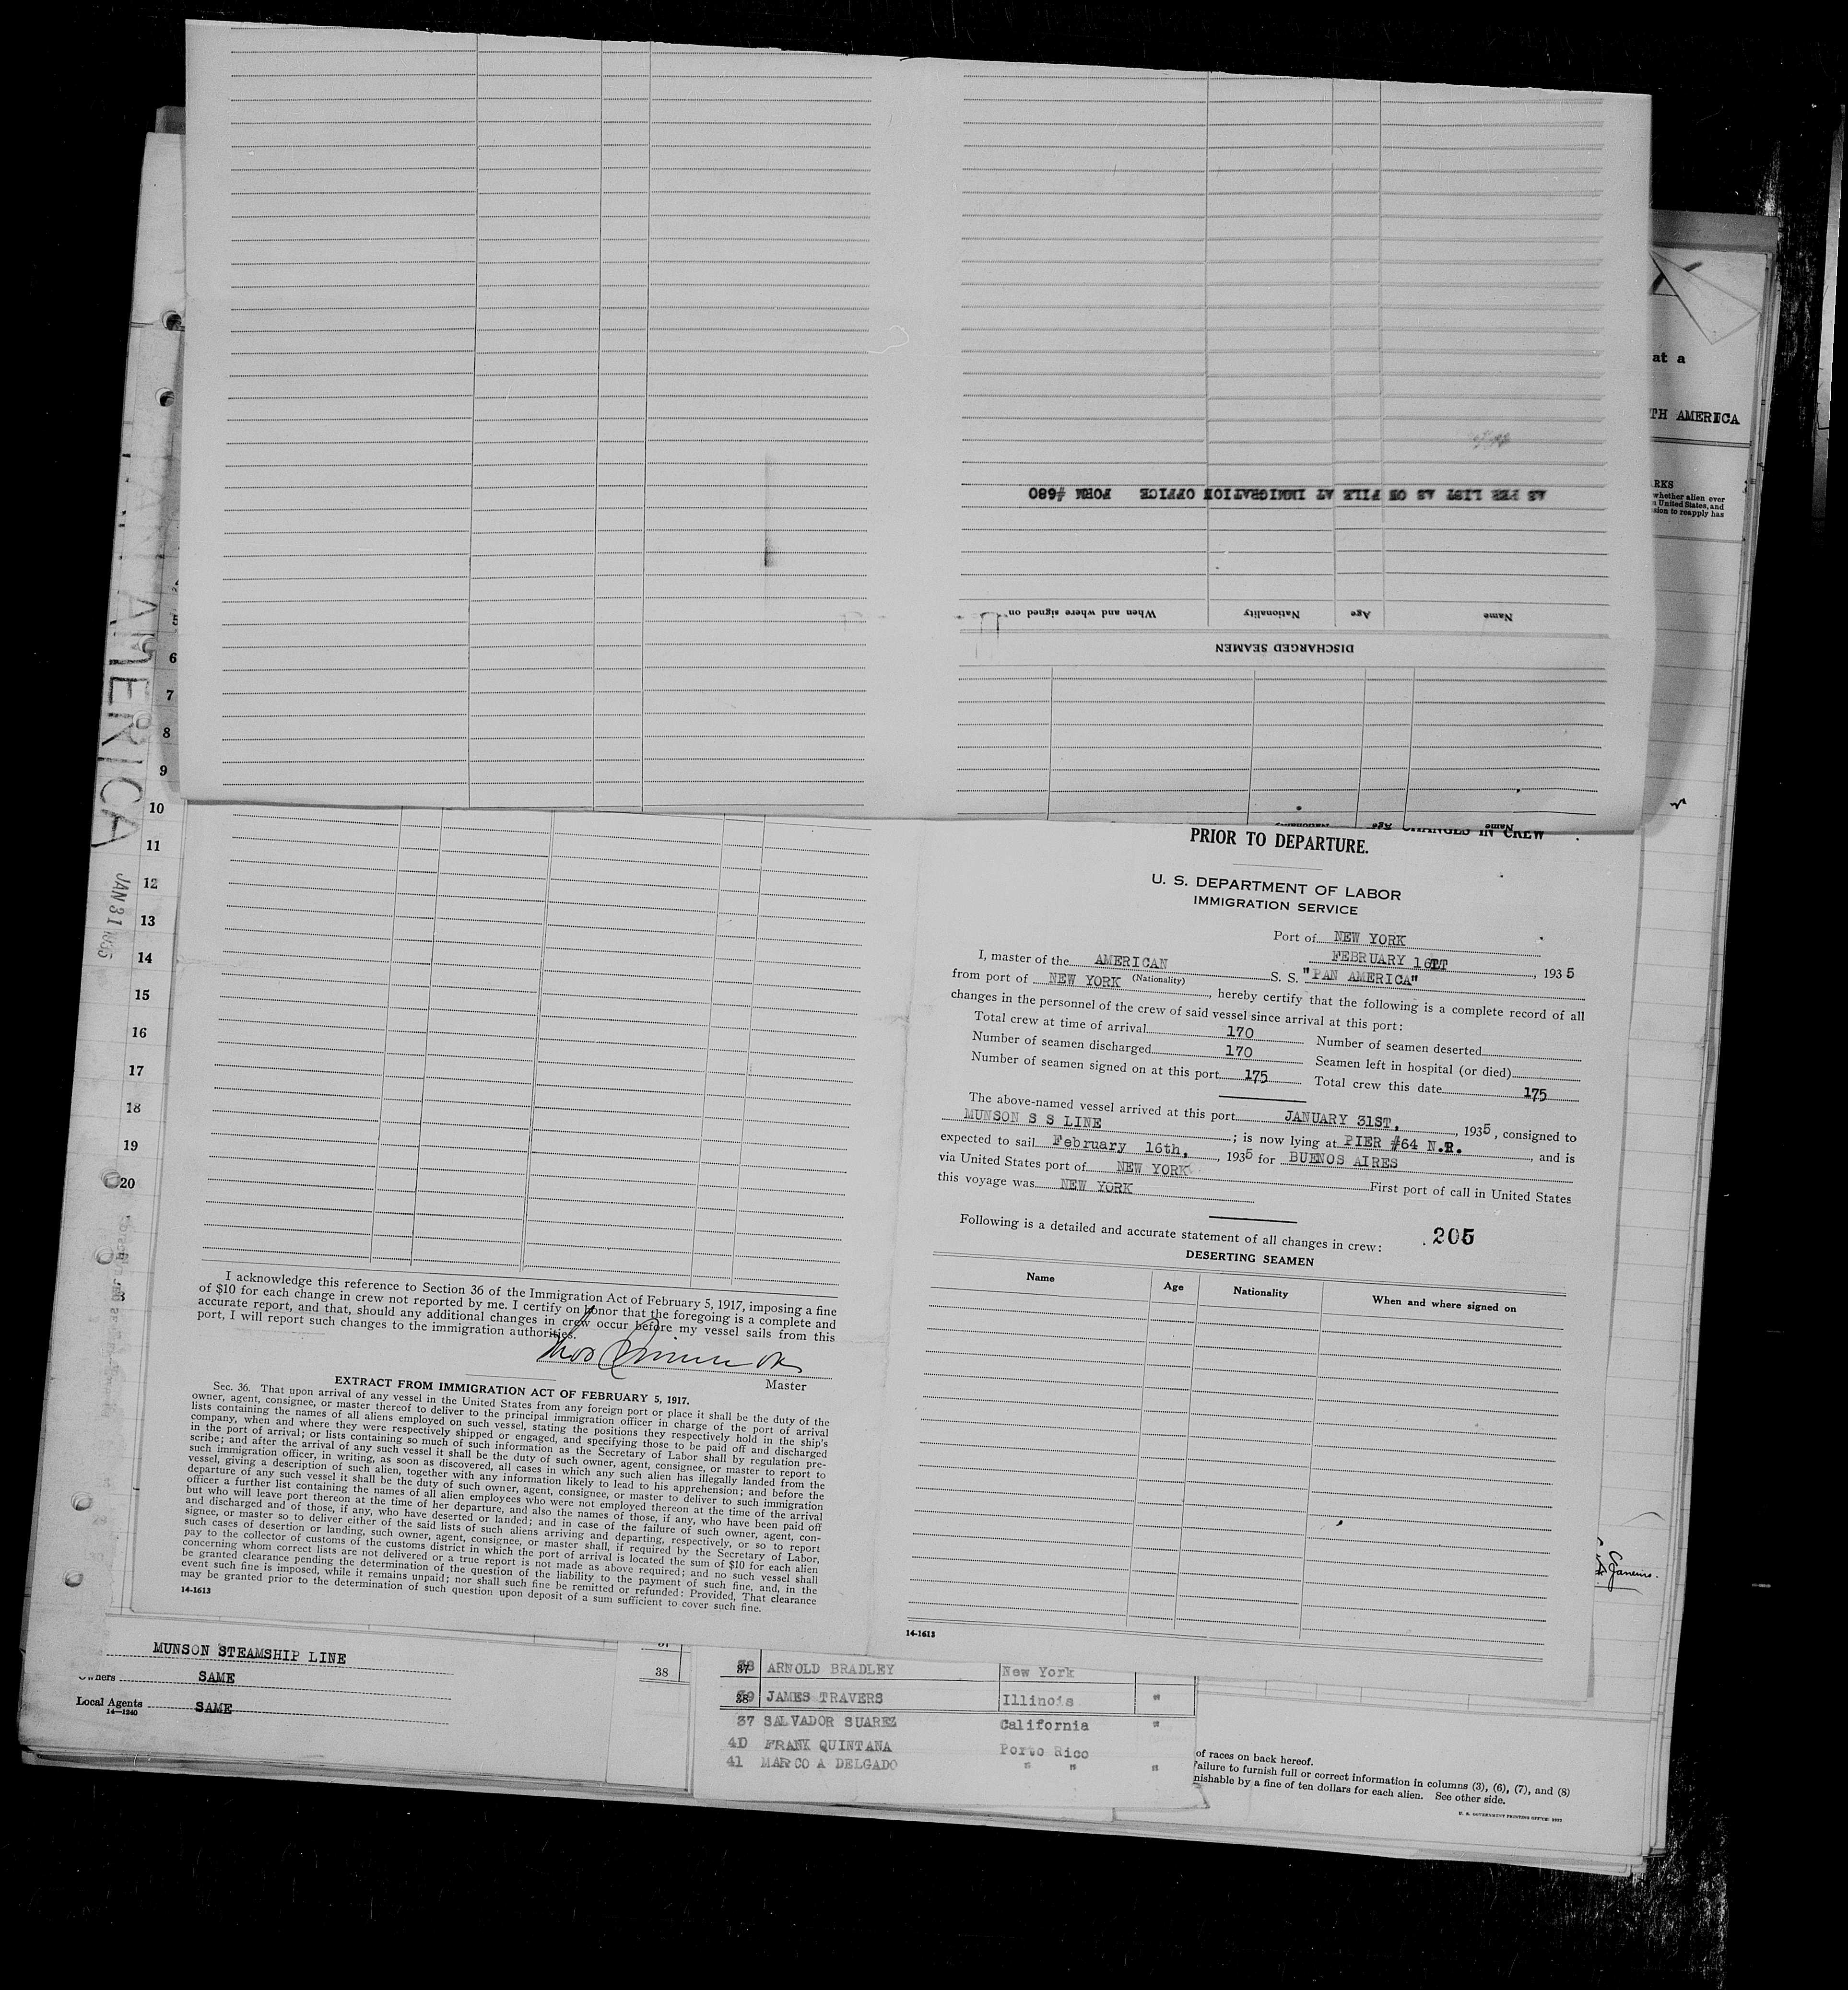 at a
TH AMERICA
RKS
whether alien ever
n United States, and
sion to reapply has
AS PER LIST AS ON FILE AT IMMIGRATION OFFICE FORM #680
Name
Age
Nationality
When and where signed on
DISCHARGED SEAMEN
Name
Age
Nationality
PAN AMERICA
JAN 31 1935
5
6
7
8
9
10
11
12
13
14
15
16
17
18
19
20
CHANGES IN CREW
PRIOR TO DEPARTURE.
U. S. DEPARTMENT OF LABOR
IMMIGRATION SERVICE
Port of NEW YORK
FEBRUARY 16, 1935
I, master of the AMERICAN S. S. "PAN AMERICA"
(Nationality)
from port of NEW YORK, hereby certify that the following is a complete record of all
changes in the personnel of the crew of said vessel since arrival at this port:
Total crew at time of arrival 170 Number of seamen deserted
Number of seamen discharged 170 Seamen left in hospital (or died)
Number of seamen signed on at this port 175 Total crew this date 175
The above-named vessel arrived at this port JANUARY 31ST, 1935, consigned to
MUNSON S S LINE; is now lying at PIER #64 N.R., and is
expected to sail February 16th, 1935 for BUENOS AIRES
via United States port of NEW YORK First port of call in United States
this voyage was NEW YORK
Following is a detailed and accurate statement of all changes in crew: 205
DESERTING SEAMEN
Name Age Nationality When and where signed on
14-1613
I acknowledge this reference to Section 36 of the Immigration Act of February 5, 1917, imposing a fine
of $10 for each change in crew not reported by me. I certify on honor that the foregoing is a complete and
accurate report, and that, should any additional changes in crew occur before my vessel sails from this
port, I will report such changes to the immigration authorities.
Master
EXTRACT FROM IMMIGRATION ACT OF FEBRUARY 5, 1917.
Sec. 36. That upon arrival of any vessel in the United States from any foreign port or place it shall be the duty of the
owner, agent, consignee, or master thereof to deliver to the principal immigration officer in charge of the port of arrival
lists containing the names of all aliens employed on such vessel, stating the positions they respectively hold in the ship's
company, when and where they were respectively shipped or engaged, and specifying those to be paid off and discharged
in the port of arrival; or lists containing so much of such information as the Secretary of Labor shall by regulation pre-
scribe; and after the arrival of any such vessel it shall be the duty of such owner, agent, consignee, or master to report to
such immigration officer, in writing, as soon as discovered, all cases in which any such alien has illegally landed from the
vessel, giving a description of such alien, together with any information likely to lead to his apprehension; and before the
departure of any such vessel it shall be the duty of such owner, agent, consignee, or master to deliver to such immigration
officer a further list containing the names of all alien employees who were not employed thereon at the time of the arrival
but who will leave port thereon at the time of her departure, and also the names of those, if any, who have been paid off
and discharged and of those, if any, who have deserted or landed; and in case of the failure of such owner, agent, con-
signee, or master so to deliver either of the said lists of such aliens arriving and departing, respectively, or so to report
such cases of desertion or landing, such owner, agent, consignee, or master shall, if required by the Secretary of Labor,
pay to the collector of customs of the customs district in which the port of arrival is located the sum of $10 for each alien
concerning whom correct lists are not delivered or a true report is not made as above required; and no such vessel shall
be granted clearance pending the determination of the question of the liability to the payment of such fine, and, in the
event such fine is imposed, while it remains unpaid; nor shall such fine be remitted or refunded: Provided, That clearance
may be granted prior to the determination of such question upon deposit of a sum sufficient to cover such fine.
14-1613
MUNSON STEAMSHIP LINE
Owners SAME
Local Agents SAME
14-1240
38
ARNOLD BRADLEY New York
JAMES TRAVERS Illinois "
37 SALVADOR SUAREZ California "
40 FRANK QUINTANA Porto Rico
41 MARCO A DELGADO " " "
of races on back hereof.
Failure to furnish full or correct information in columns (3), (6), (7), and (8)
nishable by a fine of ten dollars for each alien. See other side.
U. S. GOVERNMENT PRINTING OFFICE: